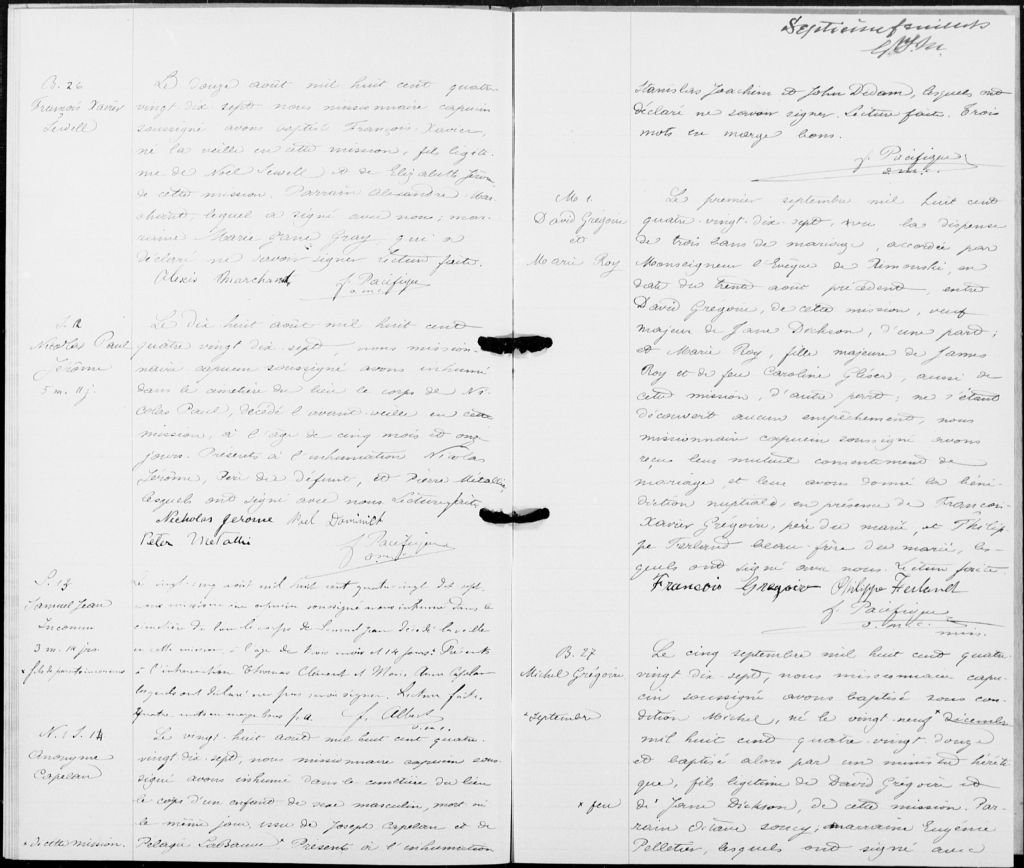 B. 26
François Xavier
Sewell
Le douze août mil huit cent quatre
vingt dix sept nous missionnaire capucin
soussigné avons baptisé François-Xavier,
né la veille en cette mission, fils légiti-
me de Noël Sewell et de Elizabeth
de cette mission. Parrain Alexandre Mar-
chand, lequel a signé avec nous; mar-
raine Marie Jane Gray qui a
déclaré ne savoir signer. Lecture faite.
Alexis Marchand f. Pacifique
o.m.c.
S. 12
Nicolas Paul
Jérôme
5 m. 11 j.
Le dix huit août mil huit cent
quatre vingt dix sept, nous mission-
naire capucin soussigné avons inhumé
dans le cimetière du lieu le corps de Ni-
colas Paul, décédé l'avant-veille en cette
mission, à l'âge de cinq mois et onze
jours. Présents à l'inhumation Nicolas
Jérôme, Père du défunt, et Pierre Métallic,
lesquels ont signé avec nous. Lecture faite.
Nicholas Jerome Noel Dominick
Peter Metallic
f. Pacifique
o.m.c.
S. 13
Samuel Jean
Inconnu
3 m. 14 jrs.
x fils de parents inconnus
Le vingt cinq août mil huit cent quatre vingt dix sept,
nous missionnaire capucin soussigné avons inhumé dans le
cimetière du lieu le corps de Samuel Jean décédé la veille
en cette mission, à l'âge de trois mois et 14 jours. x Présents
à l'inhumation Thomas Clément et Marie Anne Capelan
lesquels ont déclaré ne pas savoir signer. Lecture faite.
Quatre mots en marge bons. f. a. f. Albert
o.m.c.
N. & S. 14
Anonyme
Capelan
x de cette mission.
Le vingt-huit août mil huit cent quatre-
vingt dix-sept, nous missionnaire capucin sous-
signé avons inhumé dans le cimetière du lieu
le corps d'un enfant de sexe masculin, mort né
le même jour, issu de Joseph Capelan et de
Pélagie Labrauve x Présents à l'inhumation
Septième feuillet
Stanislas Joachim et John Dedam, lesquels ont
déclaré ne savoir signer. Lecture faite. Trois
mots en marge bons.
f. Pacifique
o.m.c.
M 1.
David Grégoire
et
Marie Roy
Le premier septembre mil huit cent
quatre-vingt-dix-sept, vu la dispense
de trois bans de mariage, accordée par
Monseigneur l'Evêque de Rimouski, en
date du trente août précédent, entre
David Grégoire, de cette mission, veuf
majeur de Jane Dickson, d'une part;
et Marie Roy, fille majeure de James
Roy et de feu Caroline Gliser, aussi de
cette mission, d'autre part; ne s'étant
découvert aucun empêchement, nous
missionnaire capucin soussigné avons
reçu leur mutuel consentement de
mariage et leur avons donné la béné-
diction nuptiale en présence de François-
Xavier Grégoire, père du marié, et Philip-
pe Ferland beau-frère du marié, les-
quels ont signé avec nous. Lecture faite.
Francois Gregoire Philippe Ferlandt
f. Pacifique
o.m.c. miss.
B. 27
Michel Grégoire
x septembre
x feu
Le cinq septembre mil huit cent quatre
vingt-dix-sept, nous missionnaire capu-
cin soussigné avons baptisé sous con-
dition Michel, né le vingt-neuf x décembre
mil huit cent quatre-vingt-douze
et baptisé alors par un ministre héréti-
que, fils légitime de David Grégoire et
de x Jane Dickson, de cette mission. Par-
rain Octave Soucy; marraine Eugénie
Pelletier, lesquels ont signé avec